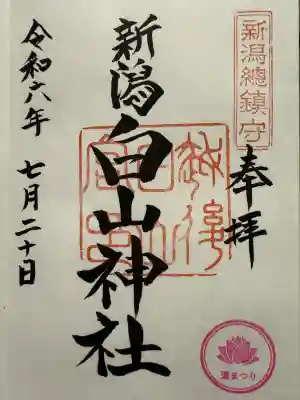 新潟總鎮守
奉拝
新潟白山神社
令和六年 七月二十日
蓮まつり